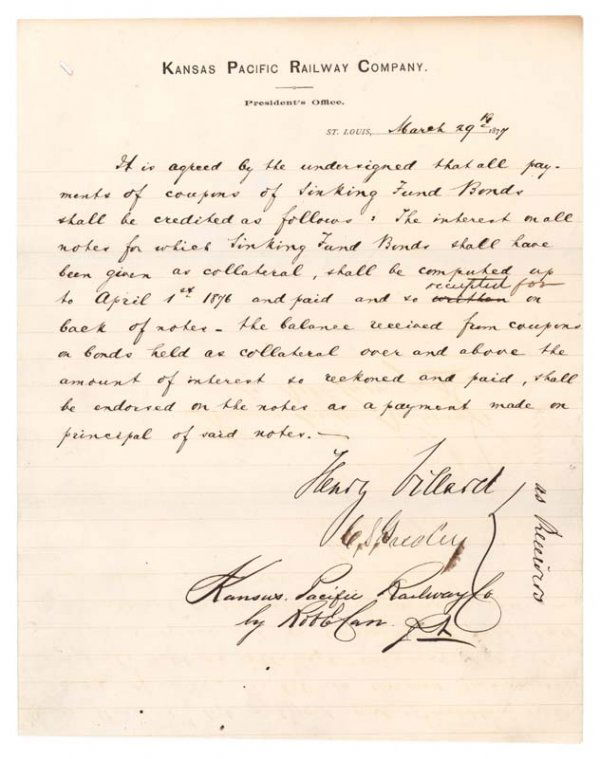 KANSAS PACIFIC RAILWAY COMPANY.
President's Office.
ST. LOUIS, March 29th 1877
It is agreed by the undersigned that all pay-
ments of coupons of Sinking Fund Bonds
shall be credited as follows: The interest on all
notes for which Sinking Fund Bonds shall have
been given as collateral, shall be computed up
to April 1st 1876 and paid and so written receipted for on
back of notes – the balance received from coupons
on bonds held as collateral over and above the
amount of interest so reckoned and paid, shall
be endorsed on the notes as a payment made on
principal of said notes. –
Henry Villard
C.S. Greeley
as Receivers
Kansas Pacific Railway Co
by Robt E Carr
Pst